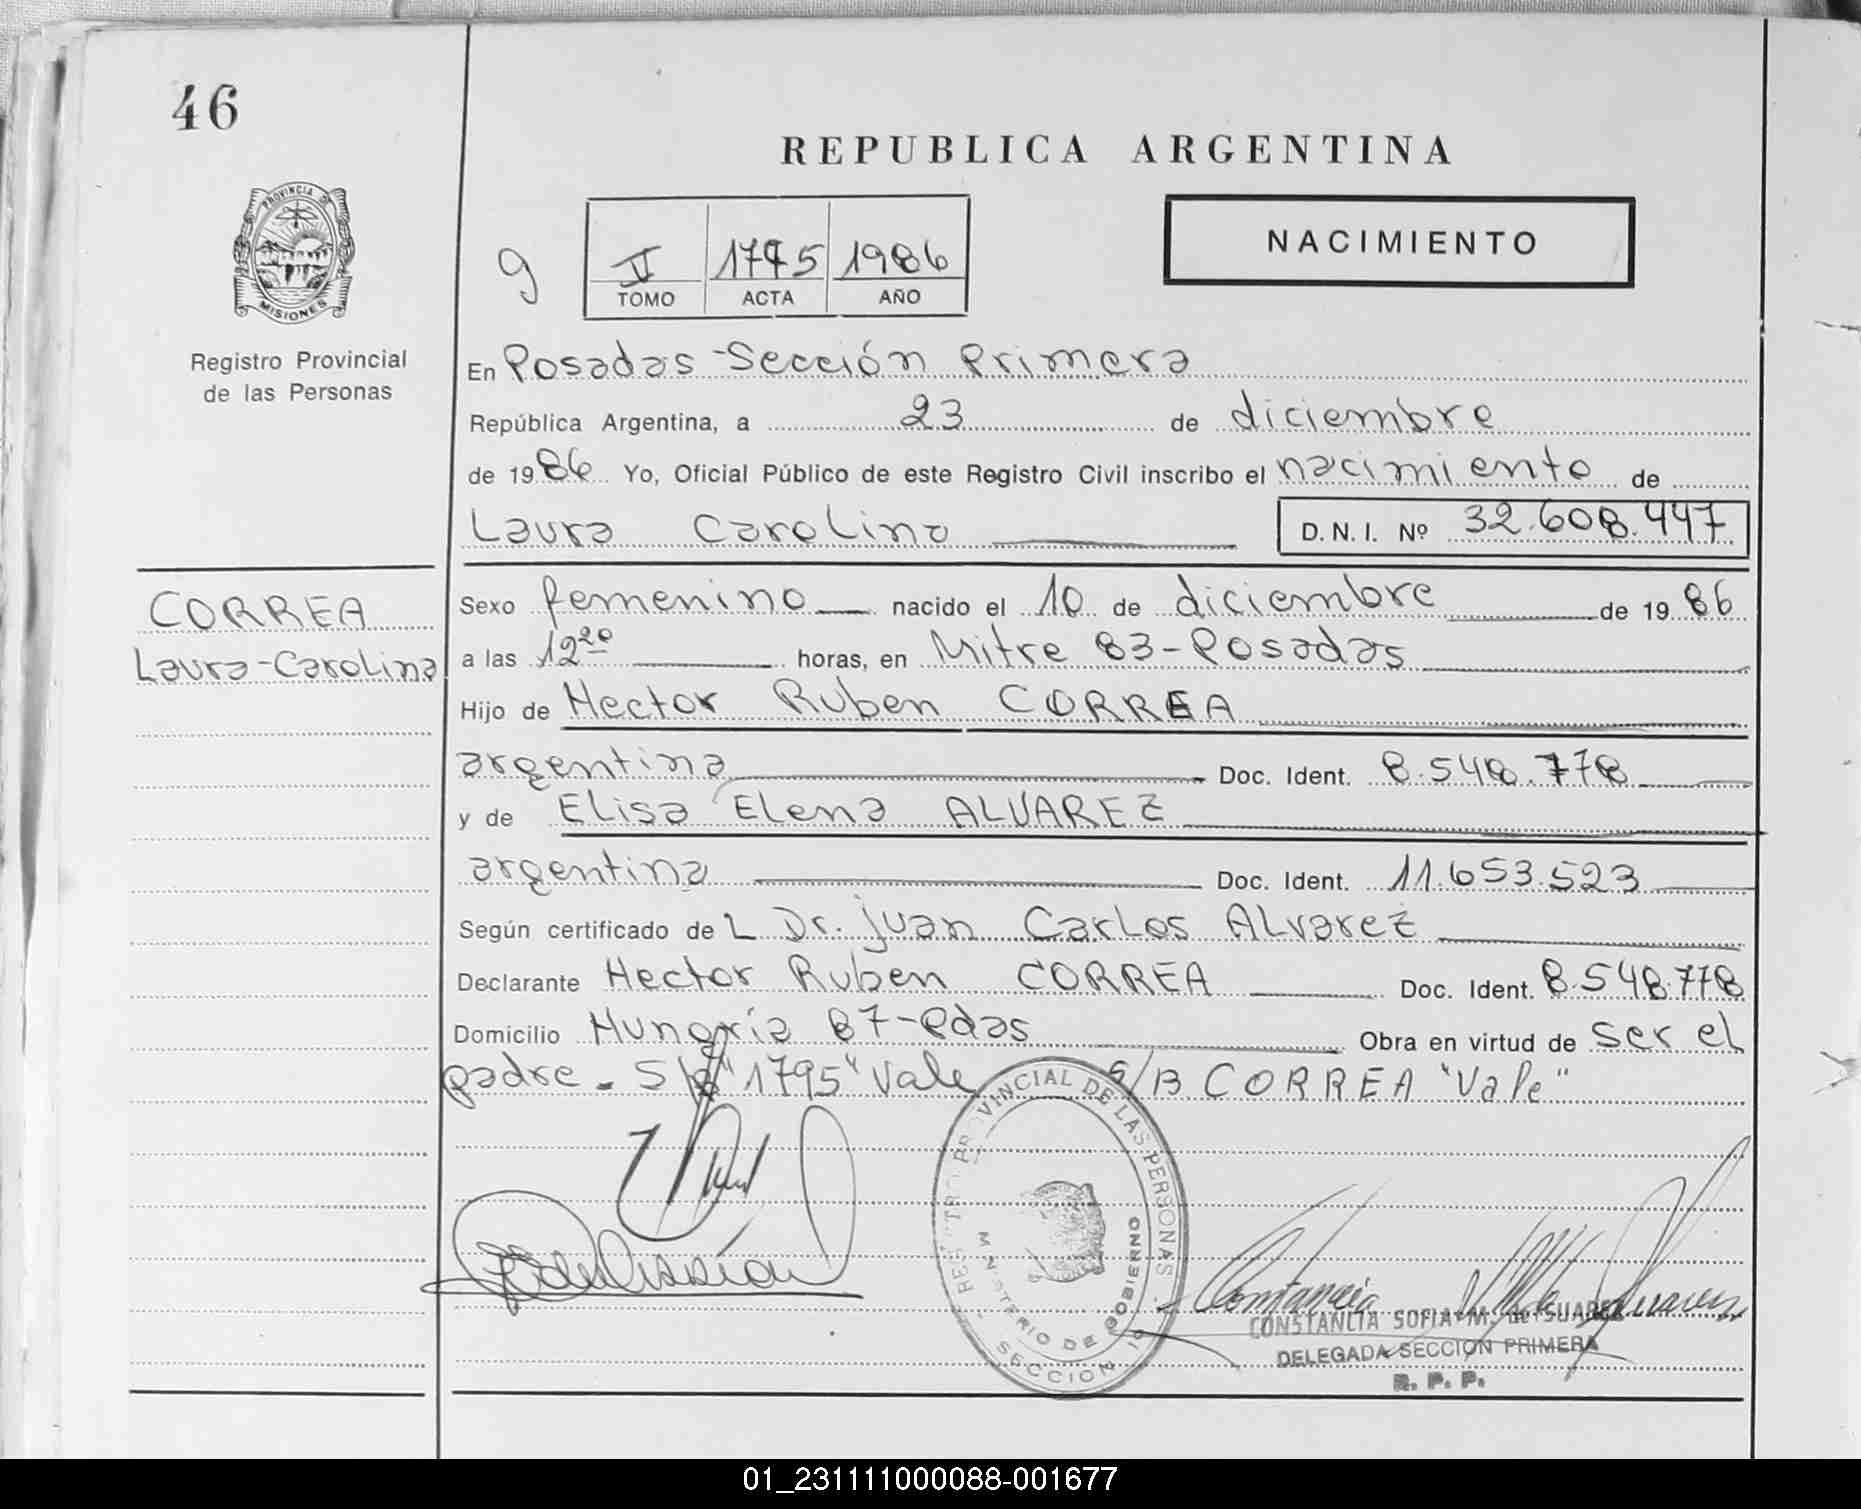 46
REPUBLICA ARGENTINA
PROVINCIA DE
MISIONES
NACIMIENTO
9
II 1795 1986
TOMO ACTA AÑO
Registro Provincial
de las Personas
En Posadas - Sección Primera
República Argentina, a 23 de diciembre
de 1986 Yo, Oficial Público de este Registro Civil inscribo el nacimiento de
Laura Carolina D.N.I. Nº 32.608.447
CORREA
Laura-Carolina
Sexo femenino nacido el 10 de diciembre de 1986
a las 12 20 horas, en Mitre 83 - Posadas
Hijo de Hector Ruben CORREA
argentina Doc. Ident. 8.548.778
y de Elisa Elena ALVAREZ
argentina Doc. Ident. 11.653.523
Según certificado de L Dr. Juan Carlos Alvarez
Declarante Hector Ruben CORREA Doc. Ident. 8.548.778
Domicilio Hungría 87 - Pdas Obra en virtud de ser el
padre - S/R "1795" Vale S/B CORREA "Vale"
REGISTRO PROVINCIAL DE LAS PERSONAS
MINISTERIO DE GOBIERNO
SECCION 1º
CONSTANCIA SOFIA M. de SUAREZ
DELEGADA SECCION PRIMERA
R. P. P.
01_231111000088-001677